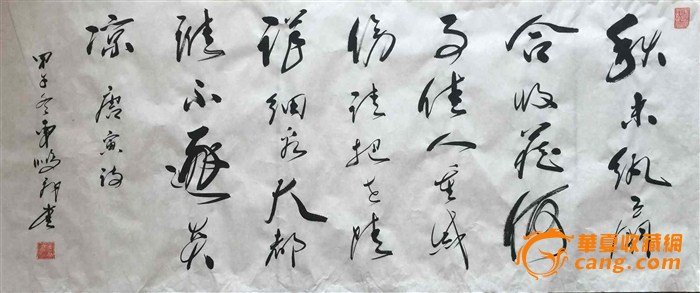 秋来纨扇
合收藏何
事佳人重感
伤请把世情
详细看大都
谁不逐炎
凉 唐寅诗
甲午冬 书
華夏收藏網
cang.com